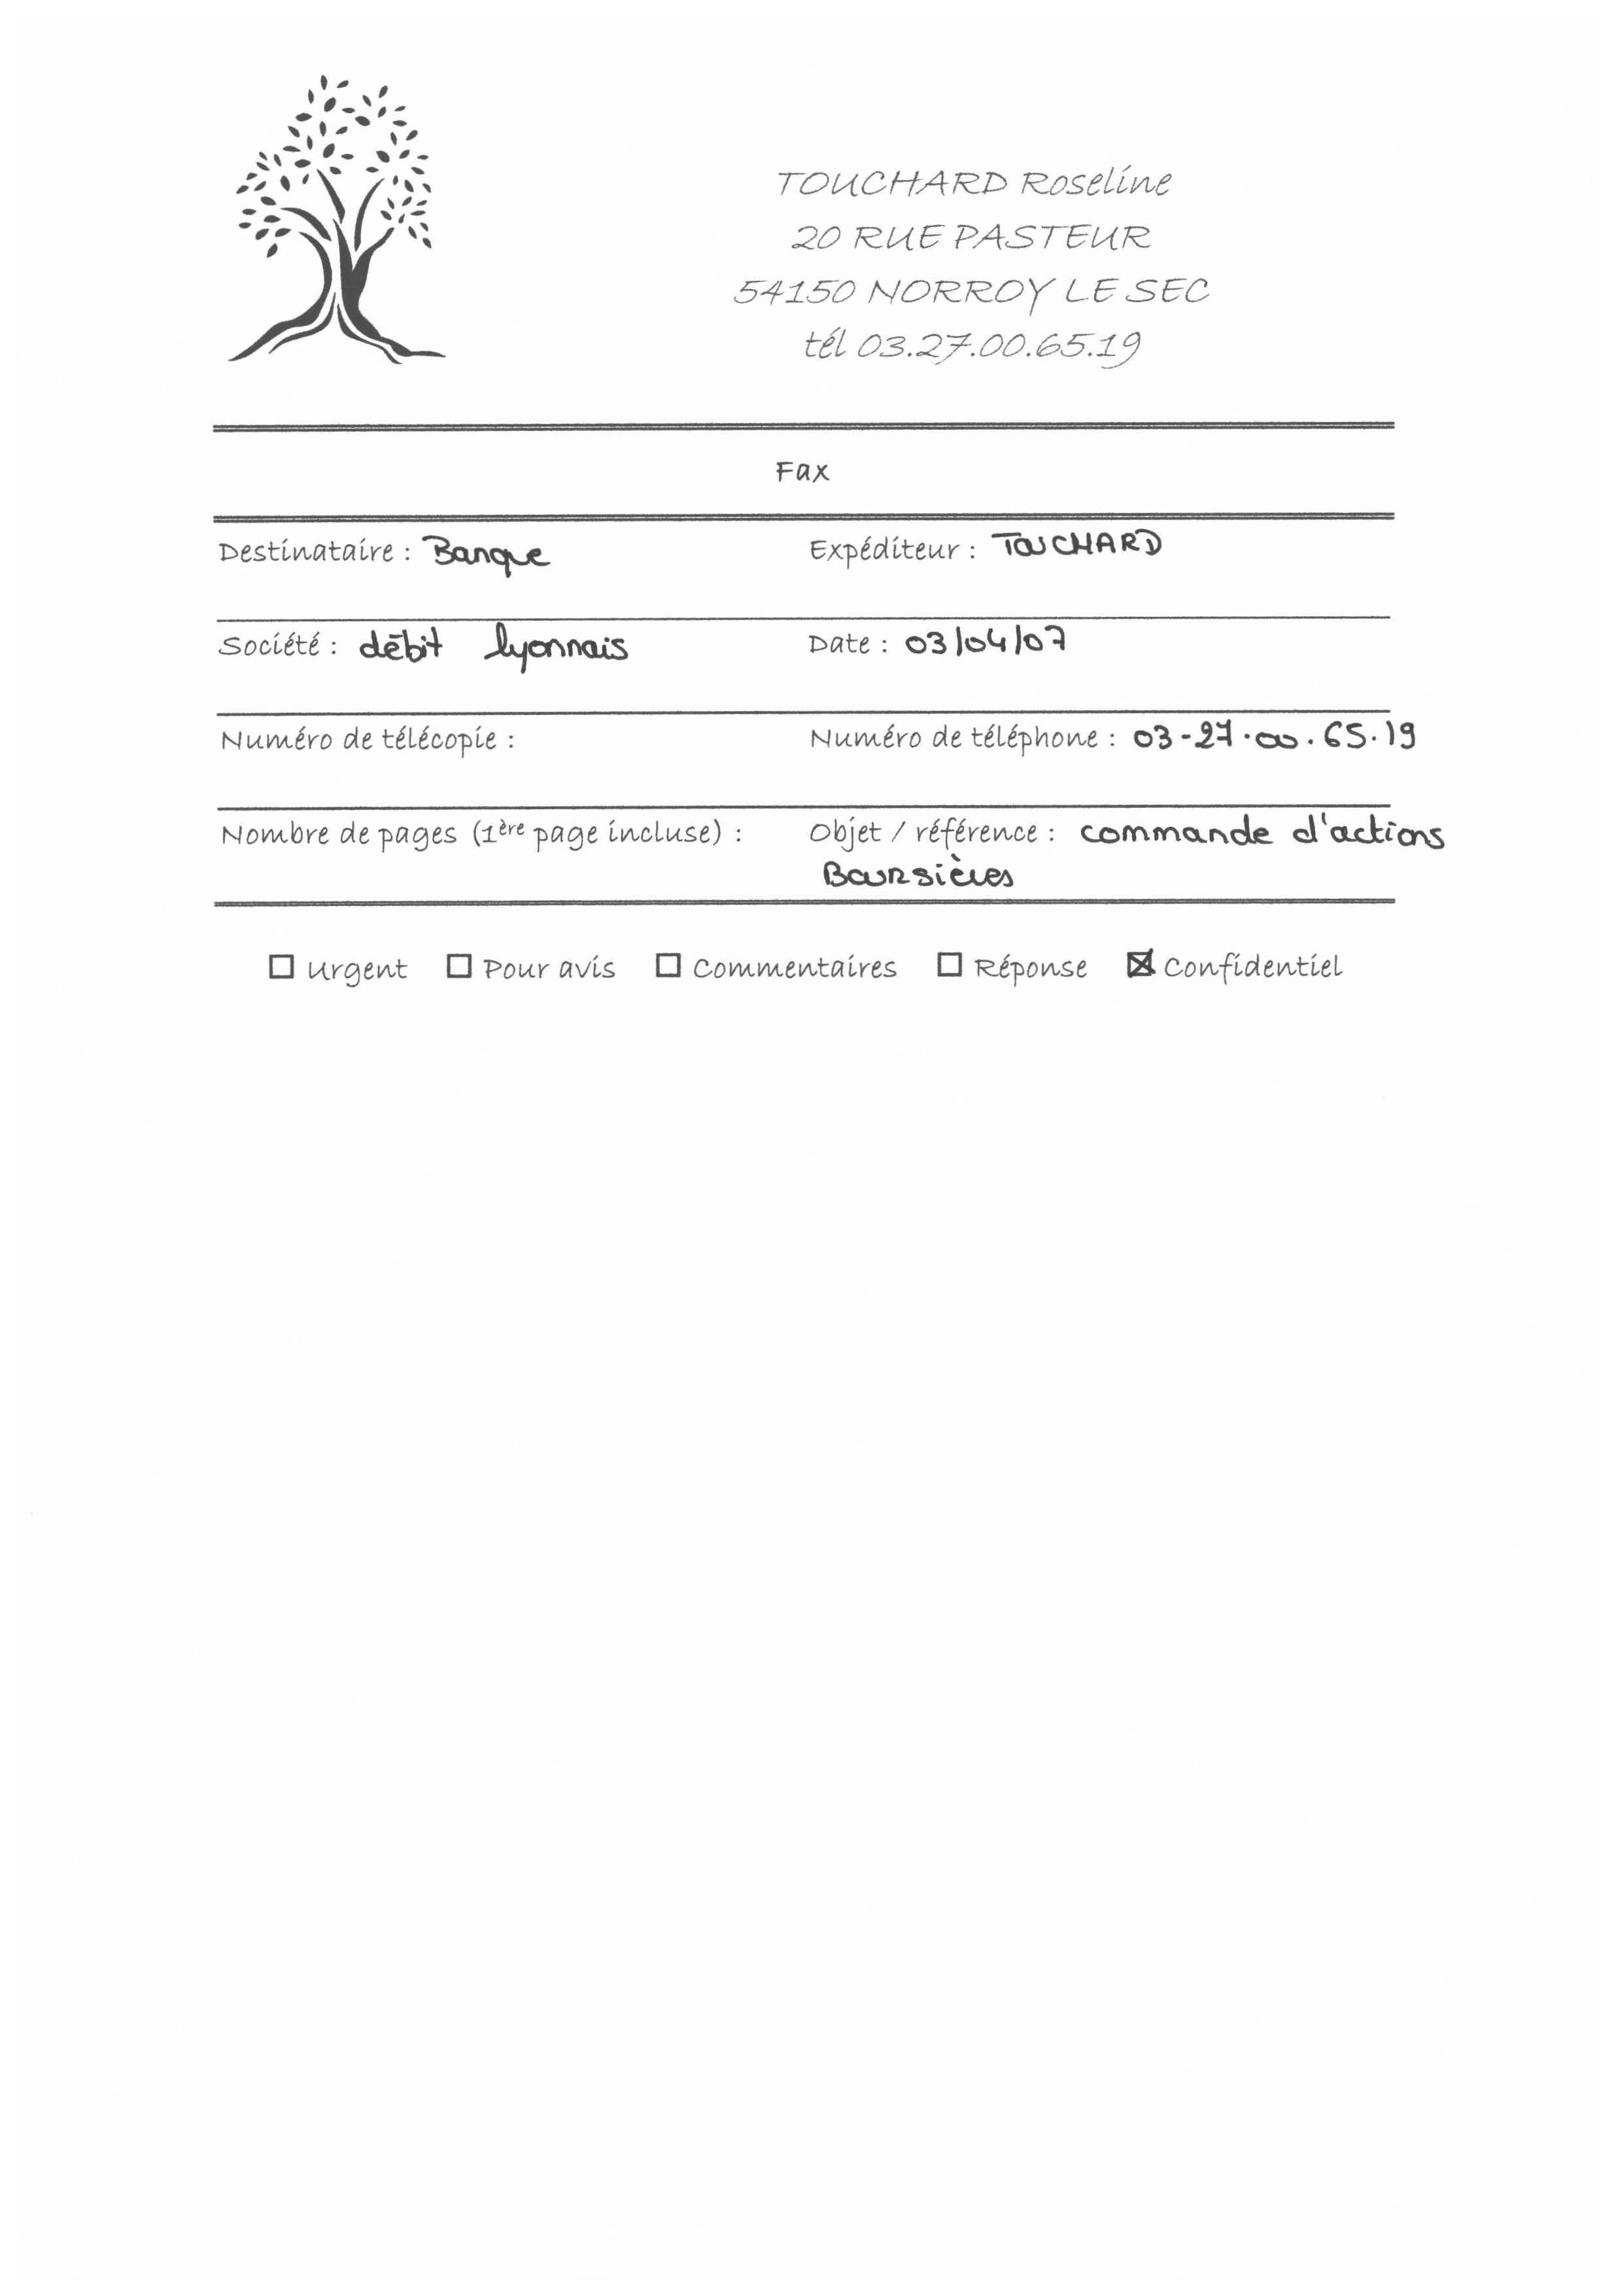 TOUCHARD Roseline
20 RUE PASTEUR
54150 NORROY LE SEC
tél 03.27.00.65.19
Fax
Destinataire : Banque Expéditeur : TOUCHARD
Société : débit lyonnais Date : 03/04/07
Numéro de télécopie : Numéro de téléphone : 03-27.00.65.19
Nombre de pages (1ère page incluse) : Objet / référence : commande d'actions
Boursières
☐ Urgent ☐ Pour avis ☐ Commentaires ☐ Réponse ☒ Confidentiel